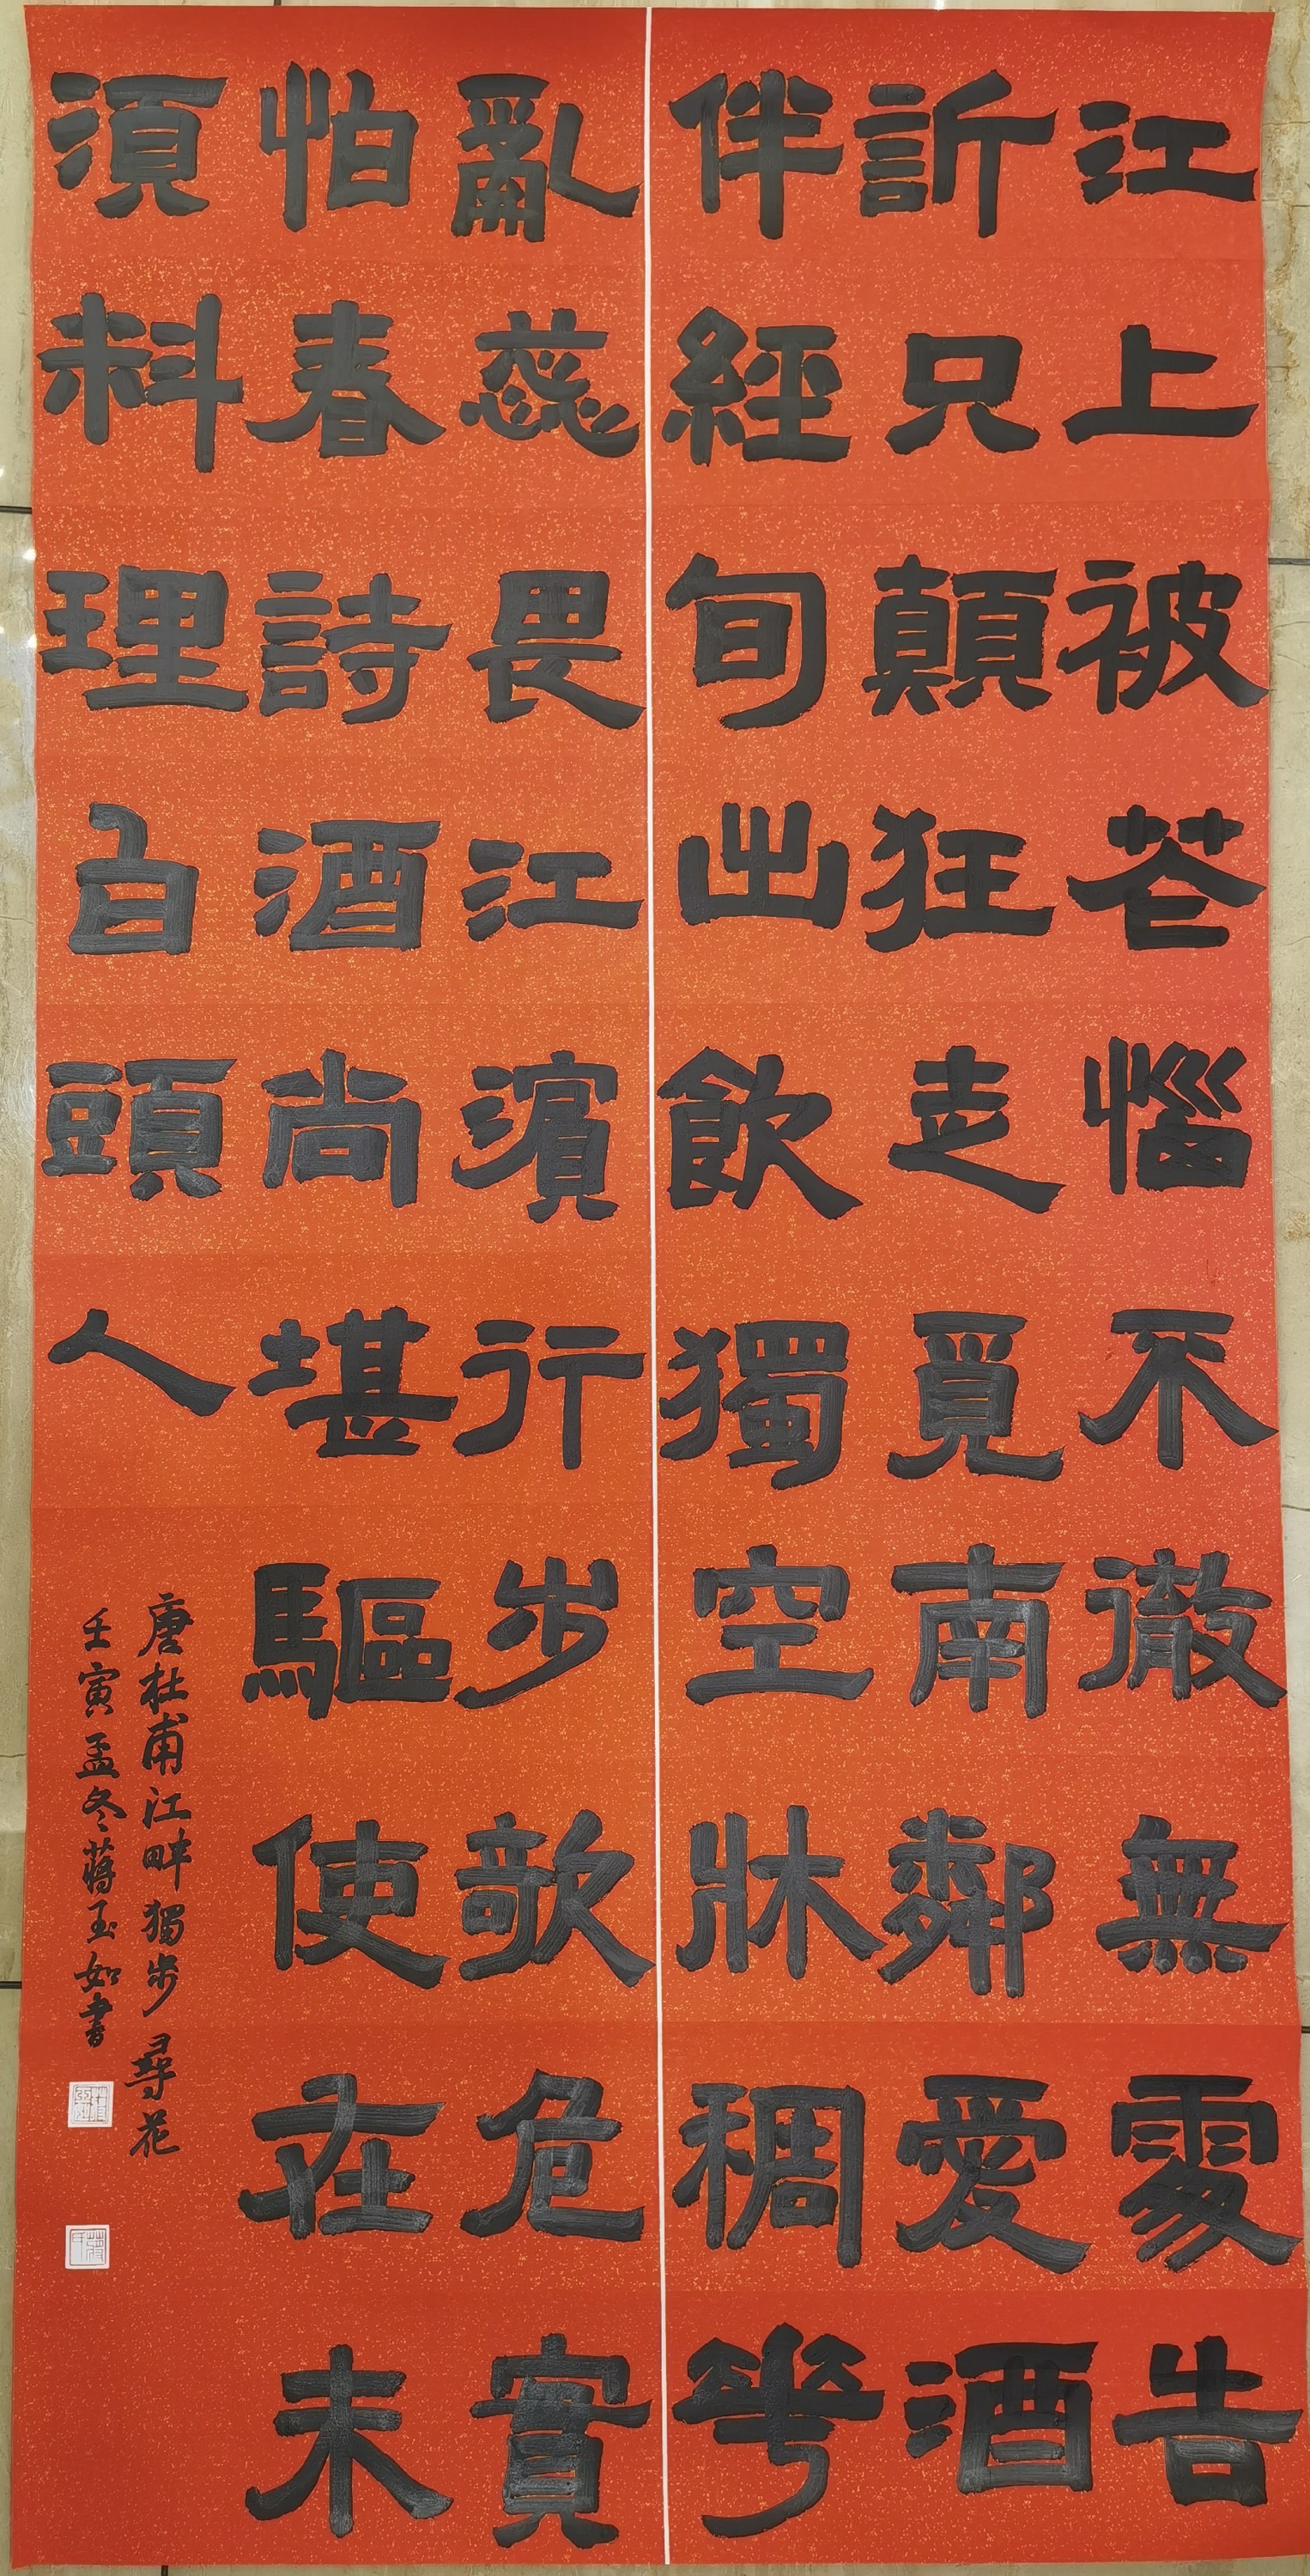 江上被花惱不徹無處告
訢只顛狂走覓南鄰愛酒
伴經旬出飲獨空牀稠華
亂蕊畏江濱行步欹危實
怕春詩酒尚堪驅使在未
須料理白頭人
唐杜甫江畔獨步尋花
壬寅孟冬蔣玉如書